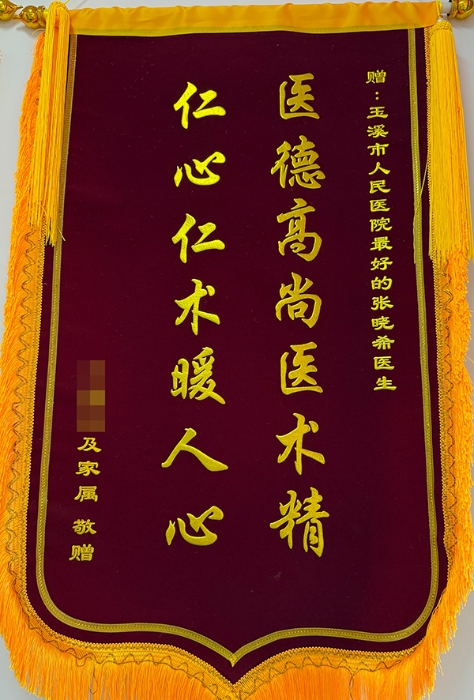 赠：玉溪市人民医院最好的张晓希医生
医德高尚医术精
仁心仁术暖人心
及家属 敬赠